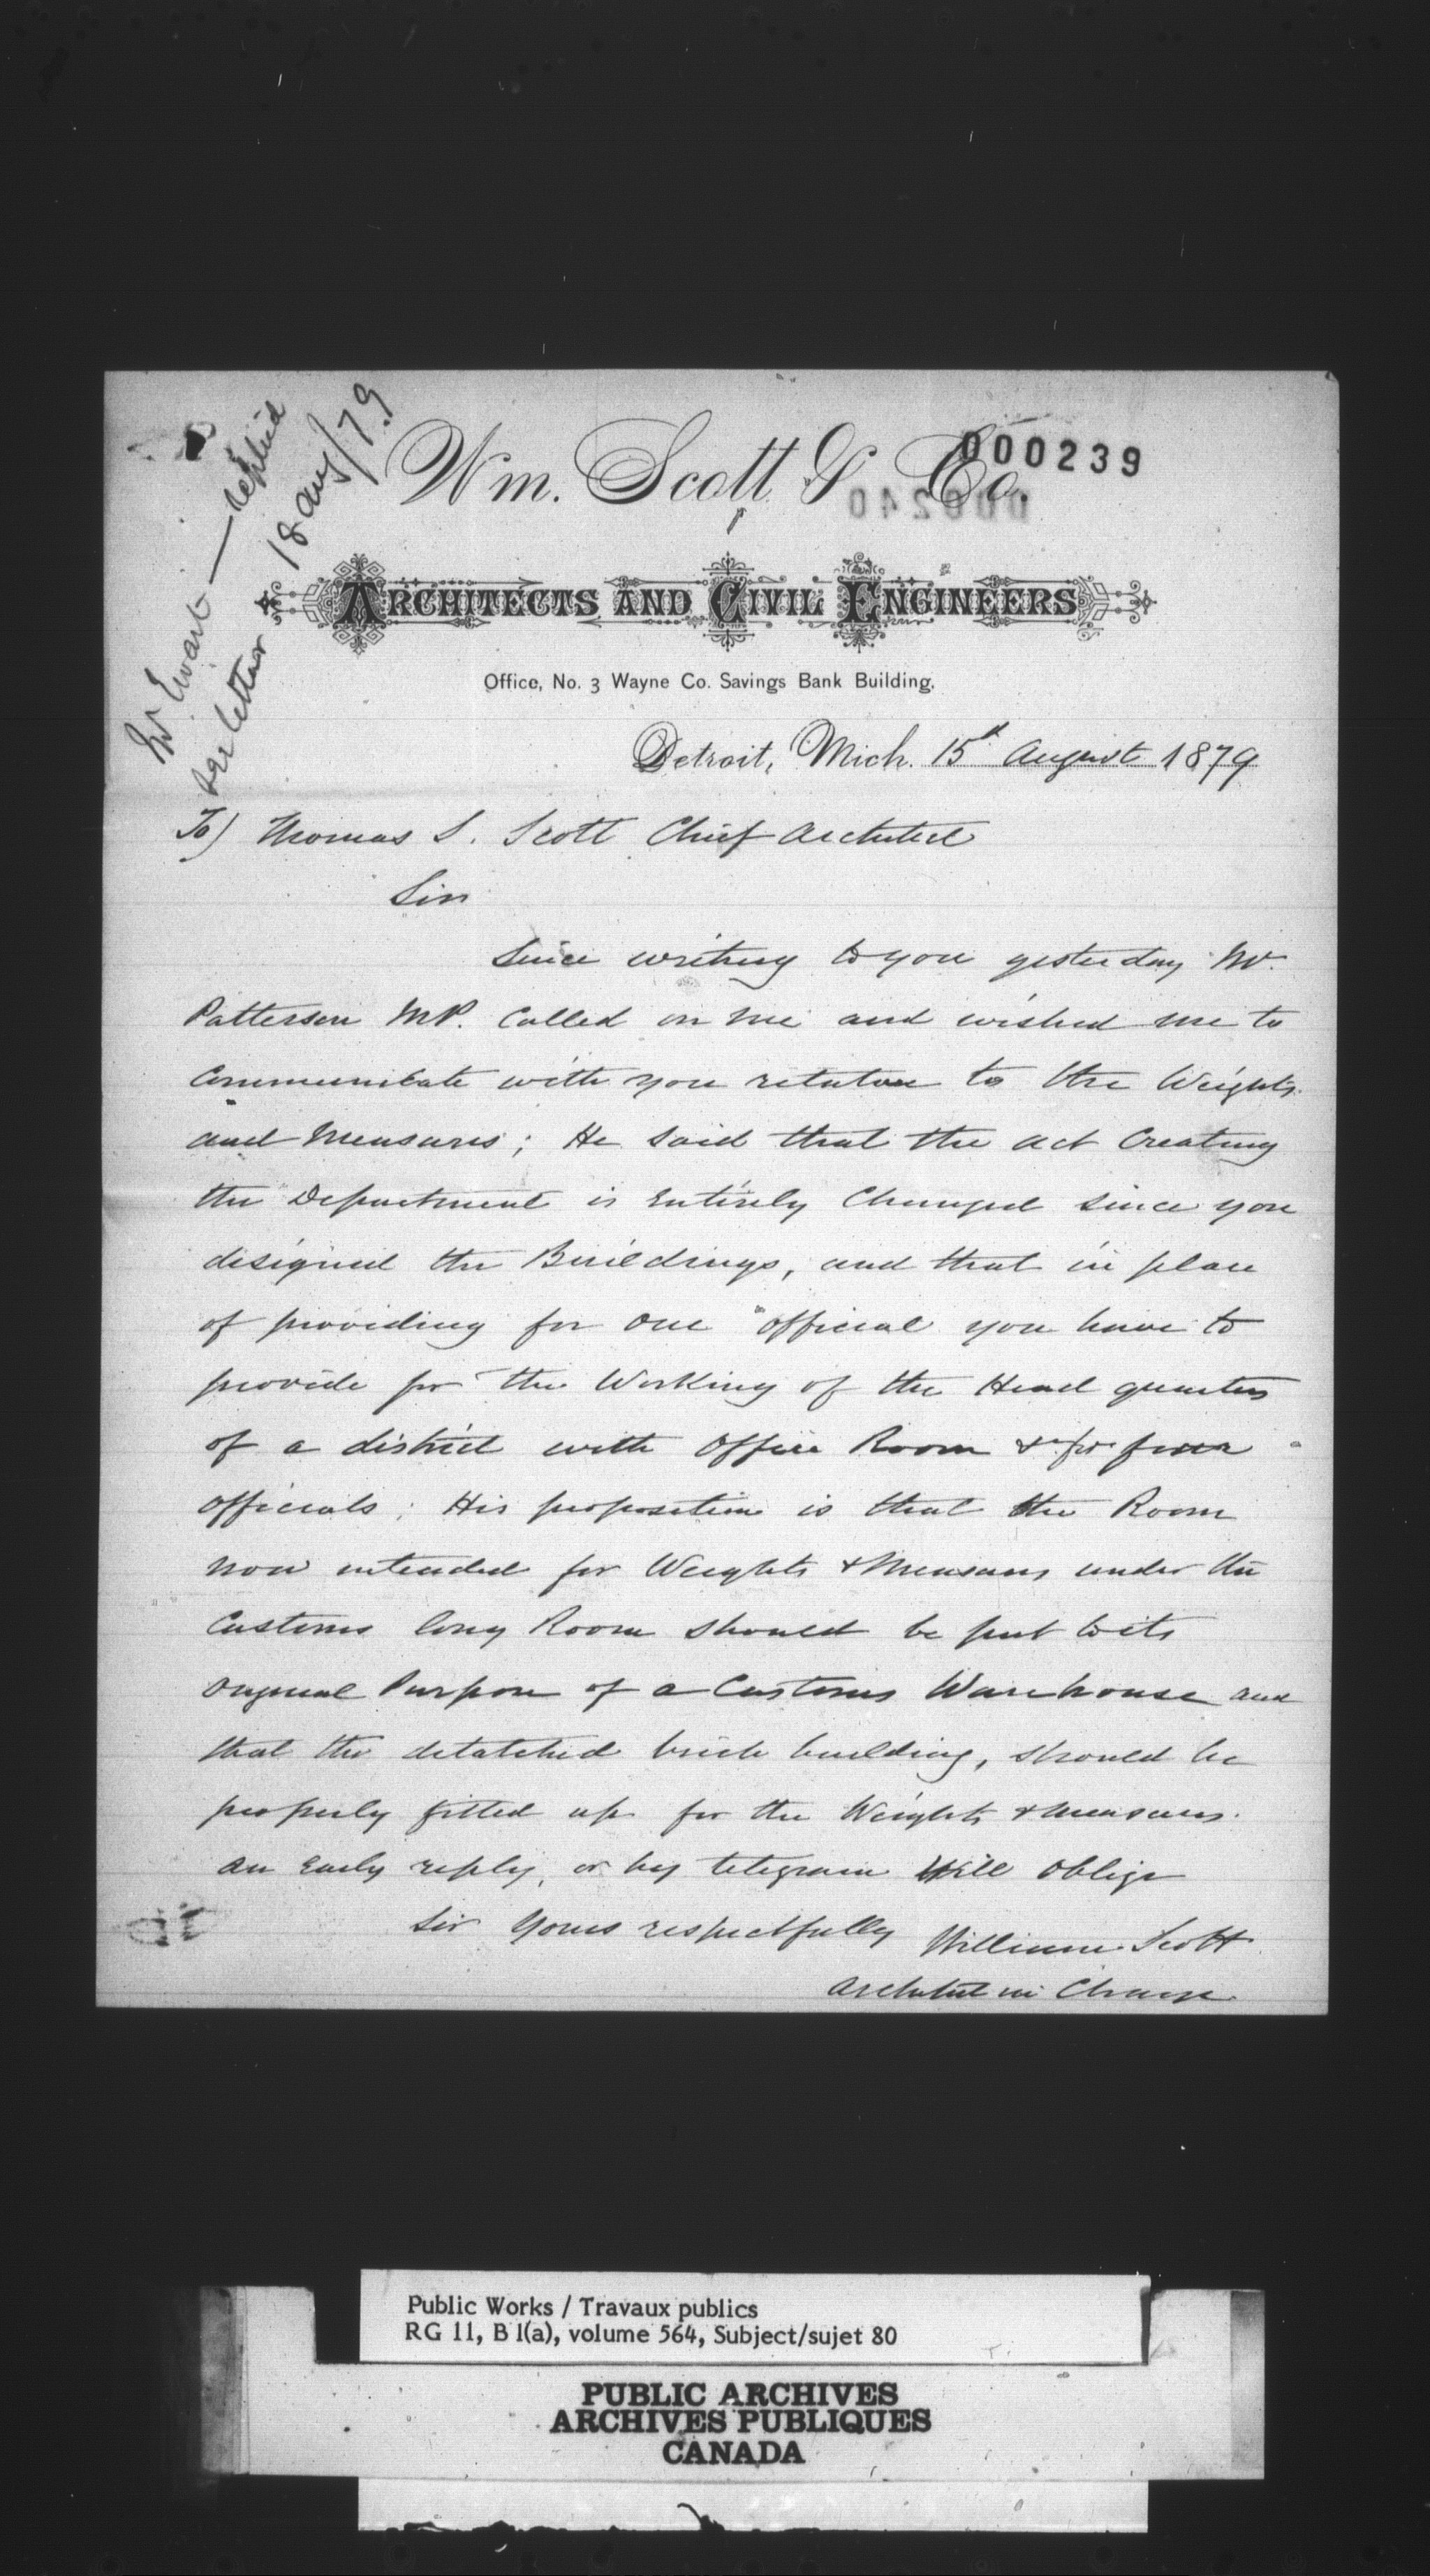 000239
000240
Mr Ewart — replied
see letter 18 aug/79
Wm. Scott & Co.
ARCHITECTS AND CIVIL ENGINEERS
Office, No. 3 Wayne Co. Savings Bank Building,
Detroit, Mich. 15th August 1879
To) Thomas S. Scott Chief Architect
Sir
Since writing to you yesterday Mr.
Patterson MP. Called on me and wished me to
Communicate with you relative to the Weights
and Measures; He said that the act Creating
the Department is Entirely Changed since you
designed the Buildings, and that in place
of providing for one official you have to
provide for the Working of the Head quarters
of a district with Office Room & for four
officials; His proposition is that the Room
now intended for Weights & Measures under the
Customs long Room should be put to its
original Purpose of a Customs Warehouse and
that the detatched brick building, should be
properly fitted up for the Weights & measures.
an Early reply, or by telegram Will oblige
Sir Yours respectfully William Scott
Architect in Charge.
Public Works / Travaux publics
RG 11, B 1(a), volume 564, Subject/sujet 80
PUBLIC ARCHIVES
ARCHIVES PUBLIQUES
CANADA